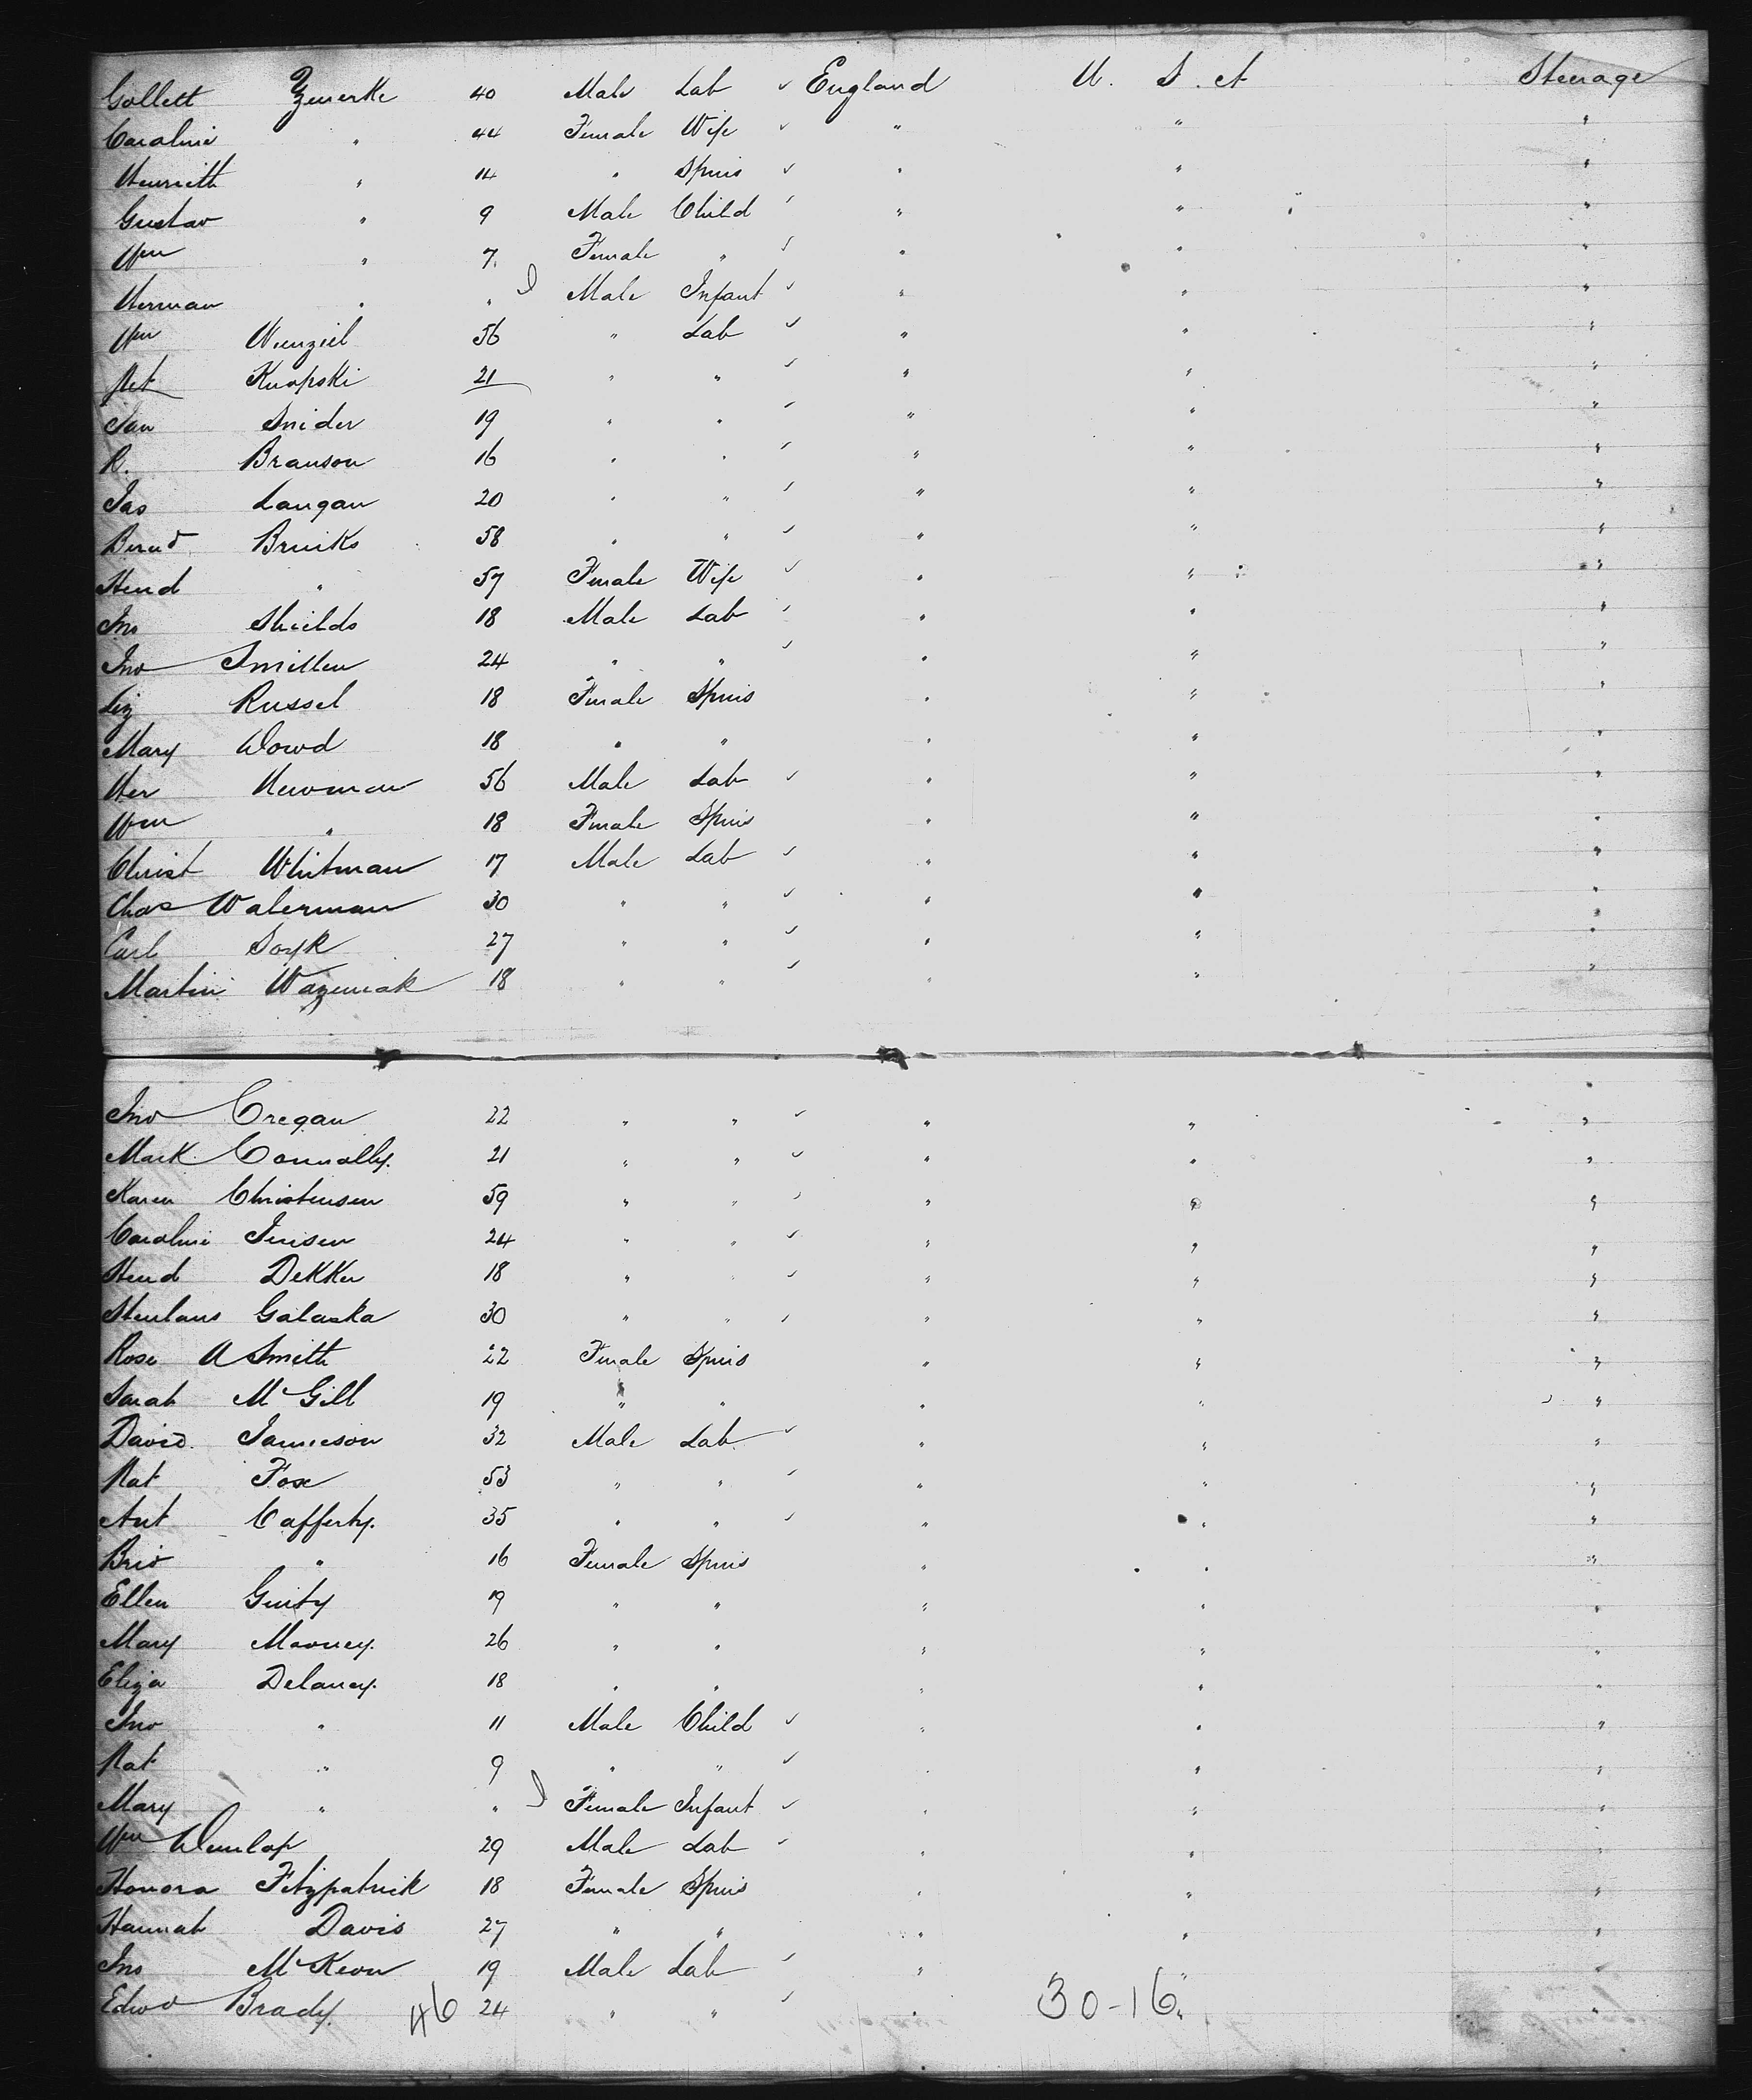 Gollett Zewerke 40 Male Lab ✓ England U. S. A Steerage
Caroline " 44 Female Wife ✓ " " "
Henrieth " 14 " Spins ✓ " " "
Gustav " 9 Male Child ✓ " " "
Wm " 7 Female " ✓ " " "
Herman " " Male Infant ✓ " " "
Wm Wenziel 56 " Lab ✓ " " "
Pet Knopski 21 " " ✓ " " "
Sam Snider 19 " " ✓ " " "
R. Branson 16 " " ✓ " " "
Jas Langan 20 " " ✓ " " "
Bernd Bruiks 58 " " ✓ " " "
Hend " 57 Female Wife ✓ " " "
Jno Shields 18 Male Lab ✓ " " "
Jno Smitten 24 " " ✓ " " "
Liz Russel 18 Female Spins " " "
Mary Dowd 18 " " " " "
Her Newman 56 Male Lab ✓ " " "
Wm " 18 Female Spins " " "
Christ Whitman 17 Male Lab ✓ " " "
Chas Waterman 30 " " ✓ " " "
Carl Soyk 27 " " ✓ " " "
Martin Wazeniak 18 " " ✓ " " "
Jno Cregan 22 " " ✓ " " "
Mark Connolly. 21 " " ✓ " " "
Karen Christensen 59 " " ✓ " " "
Caroline Jensen 24 " " ✓ " " "
Hend Dekker 18 " " ✓ " " "
Stenlaus Galaska 30 " " ✓ " " "
Rose A Smith 22 Female Spins " " "
Sarah McGill 19 " " " " "
David Jamieson 32 Male Lab ✓ " " "
Pat Fox 53 " " ✓ " " "
Ant Cafferty. 35 " " ✓ " " "
Brid " 16 Female Spins " " "
Ellen Ginty 19 " " " " "
Mary Mooney. 26 " " " " "
Eliza Delaney. 18 " " " " "
Jno " 11 Male Child ✓ " " "
Pat " 9 " " ✓ " " "
Mary " " Female Infant ✓ " " "
Wm Dunlop 29 Male Lab ✓ " " "
Honora Fitzpatrick 18 Female Spins " " "
Hannah Davis 27 " " " " "
Jno McKeon 19 Male Lab ✓ " " "
Edwd Brady. 46 24 " " ✓ " 30-16. "